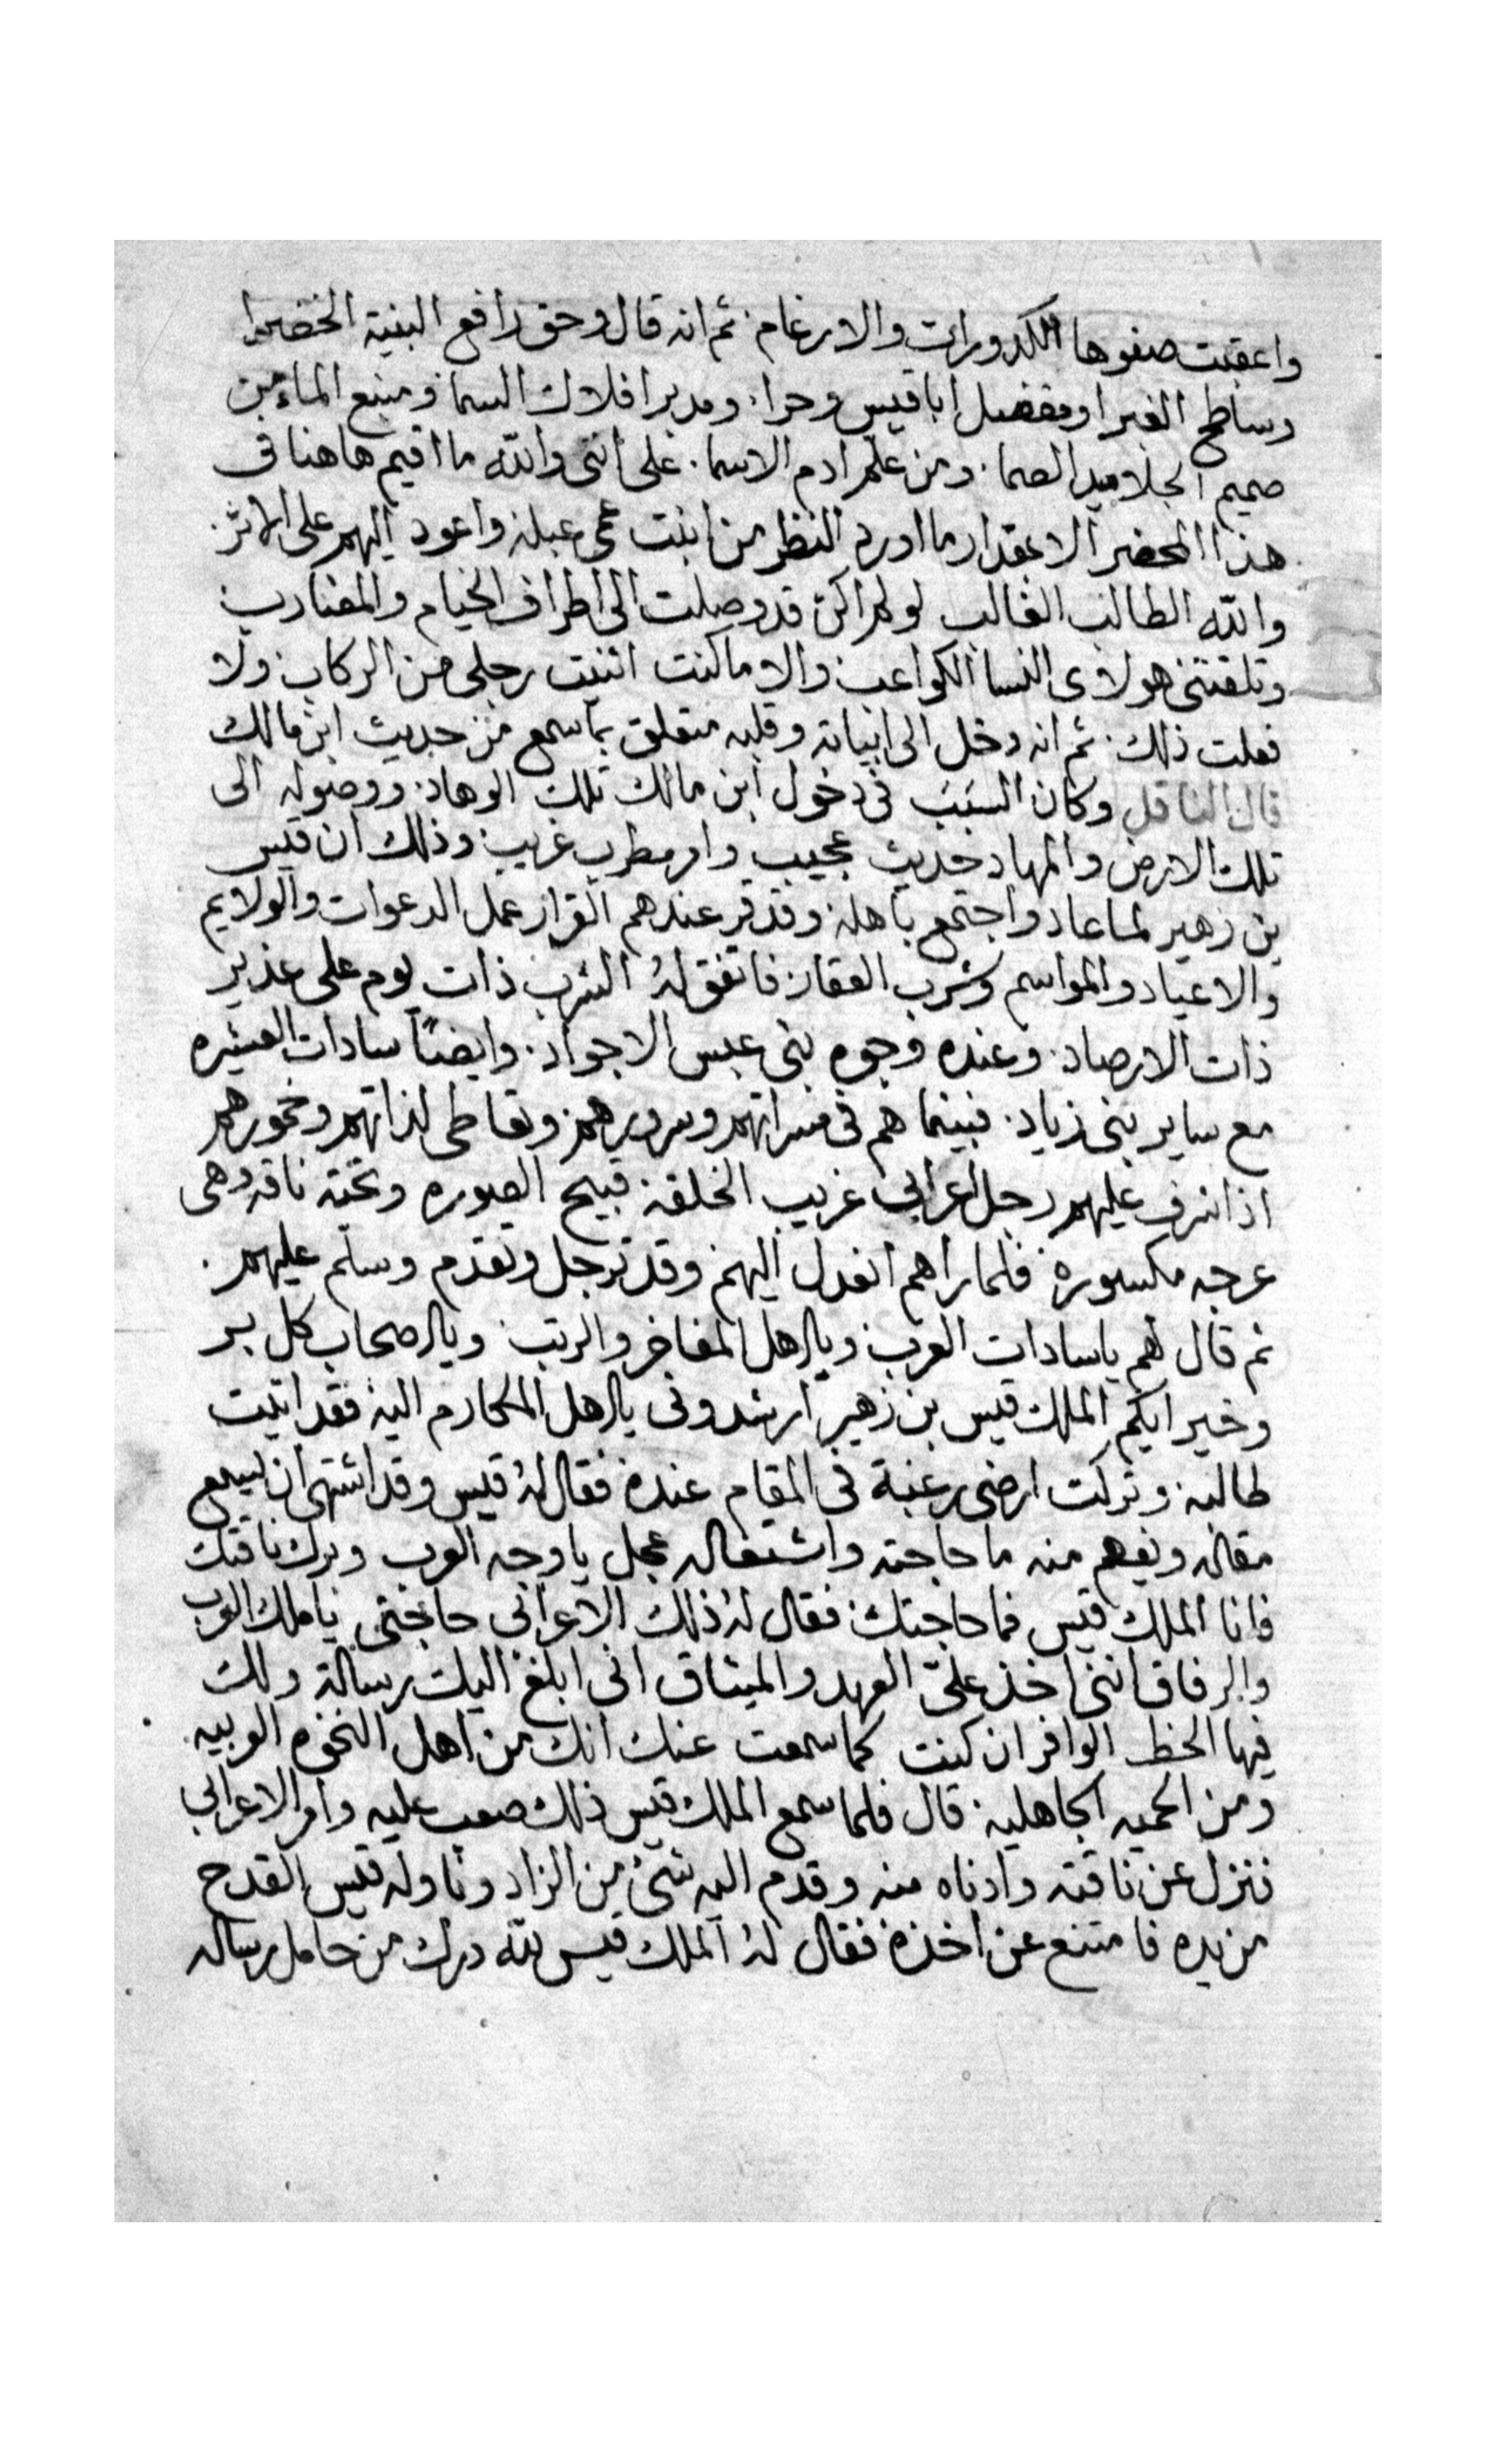 واعقبت صفوها الكدورات والارغام. ثم انه قال وحق رافع البنية الخضرا
وساطح الغبرا ومفضل ابا قيس وحرا. ومدير افلاك السما ومنبع الماء من
صميم الجلاميد الصما. ومن علم ادم الاسما. على انني والله ما اقيم هاهنا في
هذا المحضر الا مقدار ما اورد النظر من ابنت عمي عبلة واعود اليهم على الاثر.
والله الطالب الغالب لو لم اكن قد وصلت الى اطراف الخيام والمضارب
وتلقتني هولاى النسا الكواعب والا ما كنت اثنيت رجلي من الركاب ولا
فعلت ذلك. ثم انه دخل الى ابياته وقلبه متعلق بما سمع من حديث ابن مالك
قال الناقل وكان السبب في دخول ابن مالك تلك الوهاد. ووصوله الى
تلك الارض والمهاد حديث عجيب وامر مطرب غريب وذلك ان قيس
بن زهير لما عاد واجتمع باهله وقد قر عندهم القرار عمل الدعوات والولايم
والاعياد والمواسم وشرب العقار فاتفق له الشرب ذات يوم على غدير
ذات الارصاد. وعنده وجوه بني عبس الاجواد. وايضًا سادات العشيره
مع ساير بني زياد. فبينما هم في مسراتهم وسرورهم وتعاطى لذاتهم وخمورهم
اذ اشرف عليهم رجل اعرابي غريب الخلقة قبيح الصوره وتحته ناقه وهى
عرجه مكسورة فلما راهم انعدل اليهم وقد ترجل وتقدم وسلم عليهم.
ثم قال لهم يا سادات العرب ويا اهل المفاخر والرتب ويا اصحاب كل
وخير ايكم الملك قيس بن زهير ارشدوني يا اهل المكارم اليه فقد اتيت
طالبه وتركت ارضي رغبة في المقام عنده فقال له قيس وقد اشتهى ان يسمع
مقاله ويفهم منه ما حاجته واشتغاله عجل يا وجه العرب وبرك ناقتك
فانا الملك قيس فما حاجتك فقال له ذلك الاعرابي حاجتي يا ملك العرب
والرفاق انني اخذ علىّ العهد والميثاق اني ابلغ اليك رسالة ولك
فيها الحظ الوافر ان كنت كما سمعت عنك انك من اهل النخوه العربيه
ومن الحميه الجاهليه قال فلما سمع الملك قيس ذلك صعب عليه وامر الاعرابي
فنزل عن ناقته وادناه منه وقدم اليه شيئ من الزاد وناوله قيس القدح
من يده فامتنع عن اخذه فقال له الملك قيس لله درك من حامل رساله